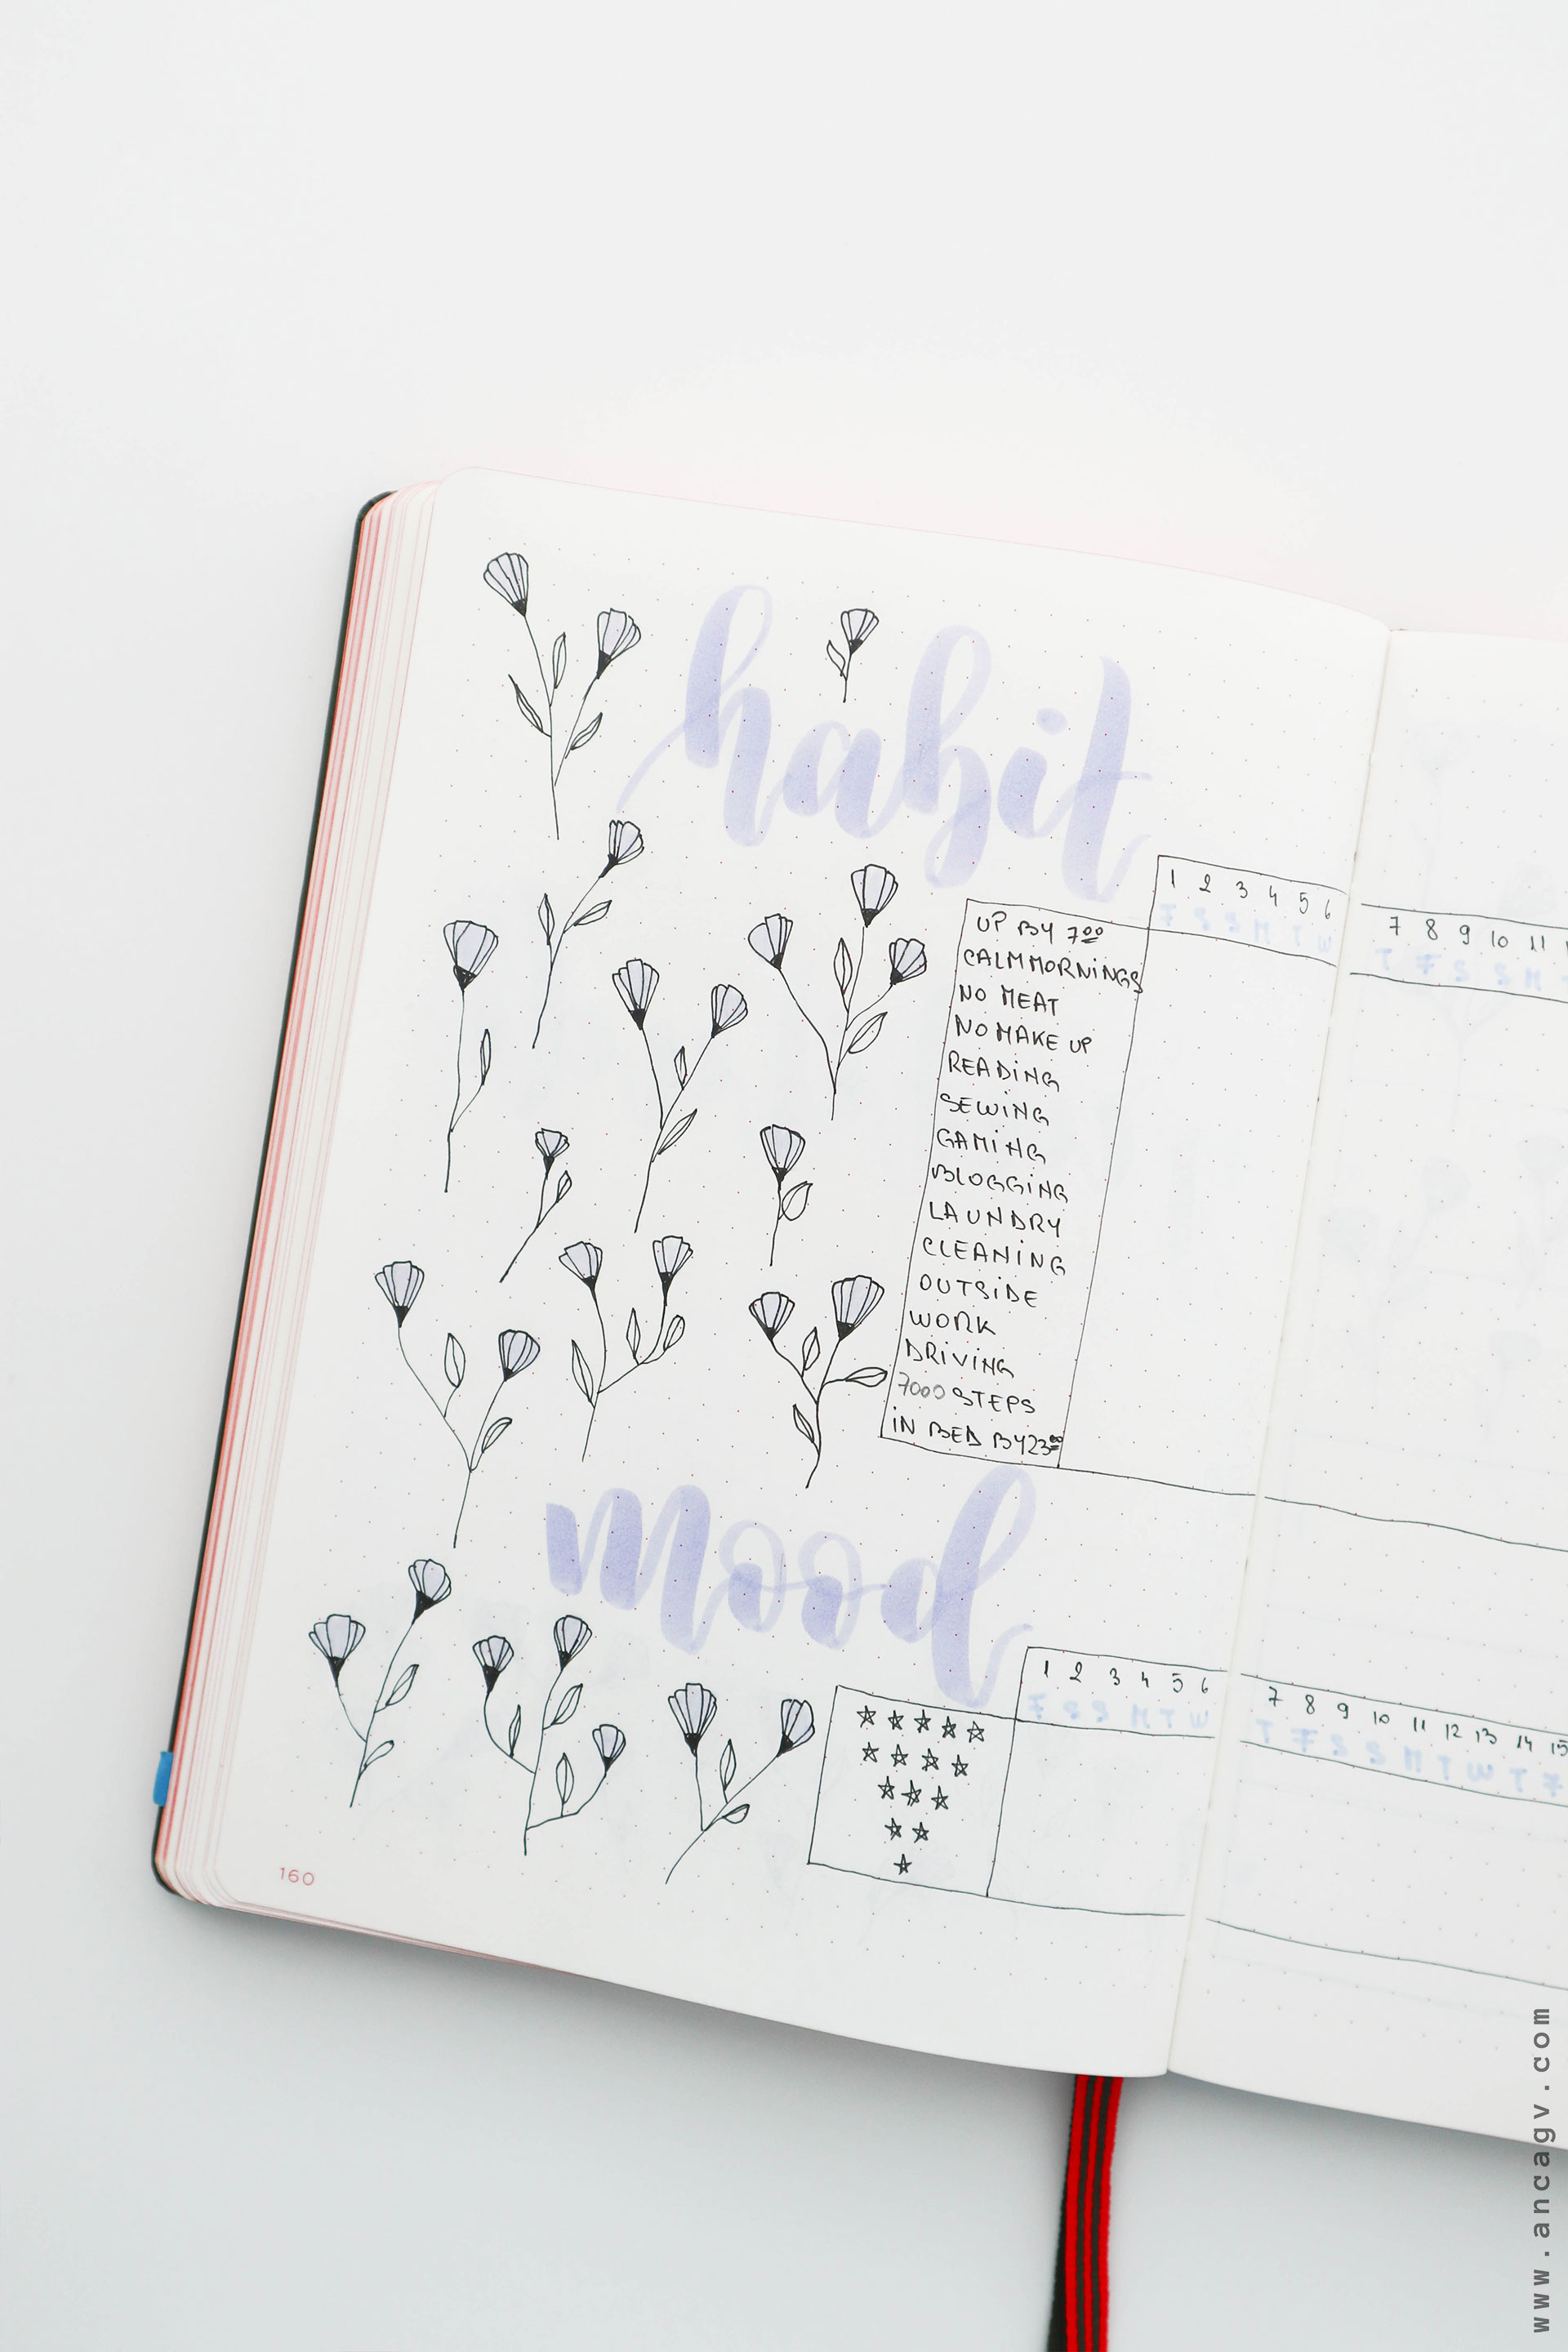 habit
1 2 3 4 5 6 7 8 9 10 11
F S S M T W T F S S M
UP BY 7⁰⁰
CALM MORNiNGS
NO MEAT
NO MAKE UP
READiNG
SEWiNG
GAMiNG
BLOGGiNG
LAUNDRY
CLEANiNG
OUTSiDE
WORK
DRiViNG
7000 STEPS
iN BED BY 23⁰⁰
mood
1 2 3 4 5 6 7 8 9 10 11 12 13 14 15
F S S M T W T F S S M T W T F
160
www.ancagv.com